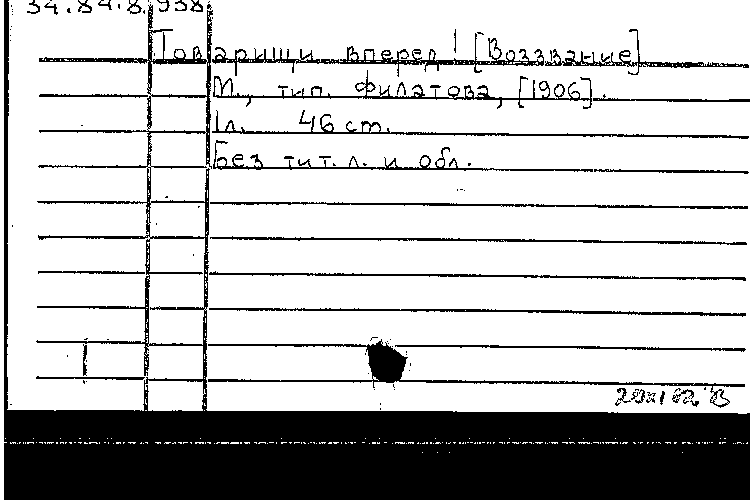 34.84.8.938
Товарищи вперед! [Воззвание]
М., тип. Филатова, [1906].
1л. 46 cm.
Без тит. л. и обл.